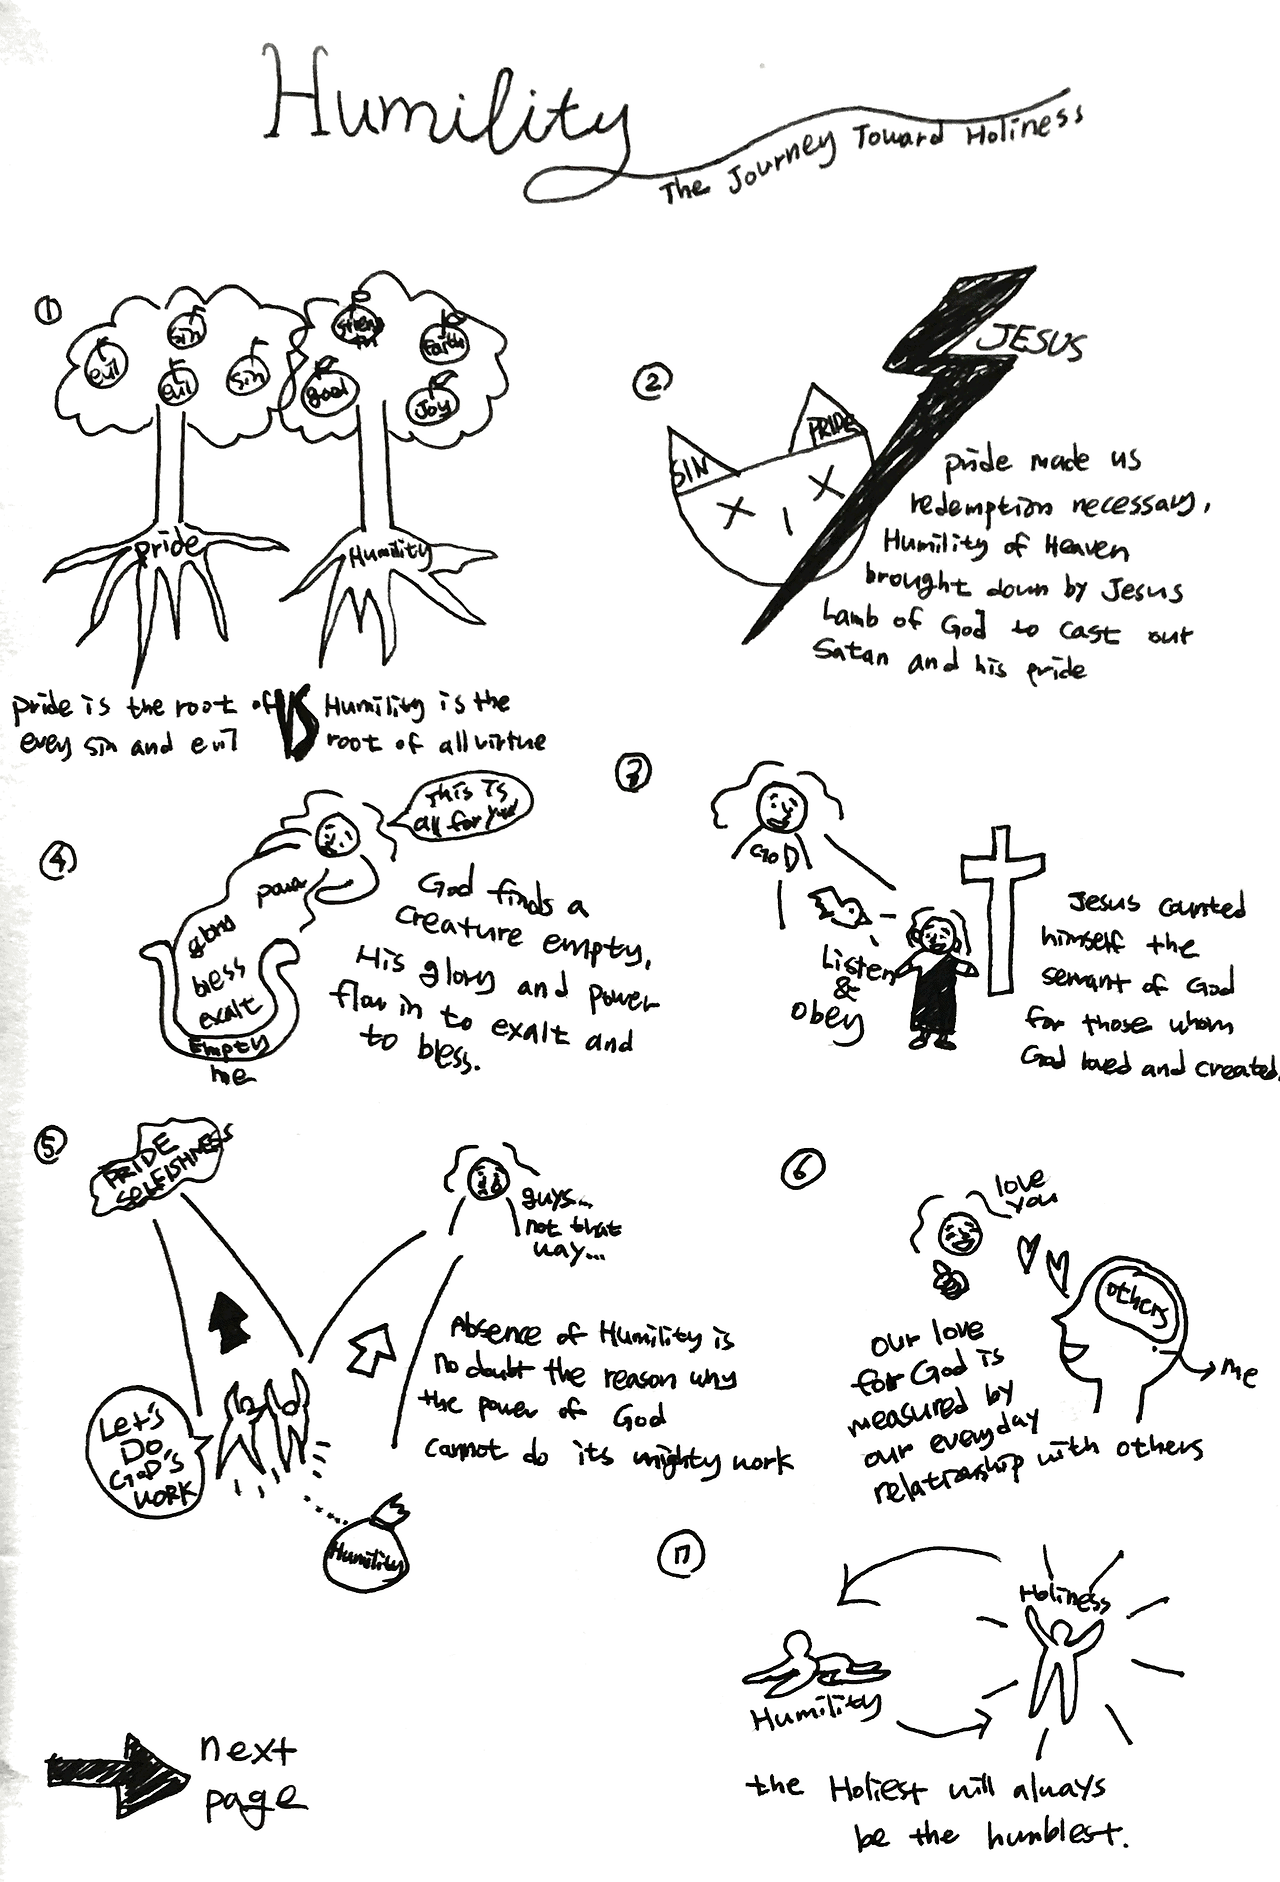 Humility
The Journey Toward Holiness
①
sin
evil
evil
sin
faith
good
Joy
pride
Humility
pride is the root of
every sin and evil
VS
Humility is the
root of all virtue
②
JESUS
SIN
PRIDE
pride made us
redemption necessary,
Humility of Heaven
brought down by Jesus
Lamb of God to cast out
Satan and his pride
③
GOD
Listen
&
obey
Jesus counted
himself the
servant of God
for those whom
God loved and created.
④
This is
all for you
power
glory
bless
exalt
Empty
me
God finds a
creature empty,
His glory and power
flow in to exalt and
to bless.
⑤
PRIDE
SELFISHNESS
guys...
not that
way...
Let's
Do
GOD'S
WORK
Humility
Absence of Humility is
no doubt the reason why
the power of God
cannot do its mighty work
⑥
love
you
others
me
our love
for God is
measured by
our everyday
relationship with others
⑦
Holiness
Humility
the Holiest will always
be the humblest.
next
page